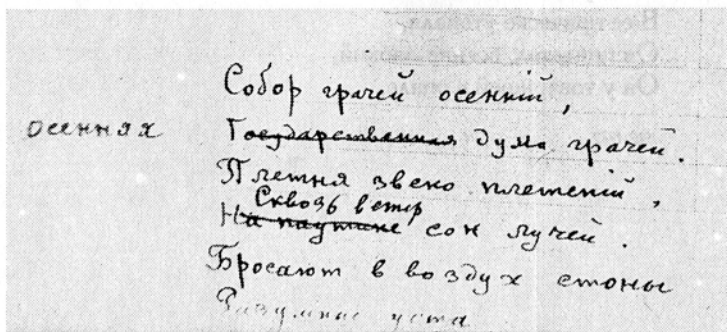 Собор грачей осенній,
осенняя Государственная дума грачей.
Плетня звено плетеній,
Сквозь ветер
На паутине сон лучей.
Бросают в воздух стоны
Разумные уста